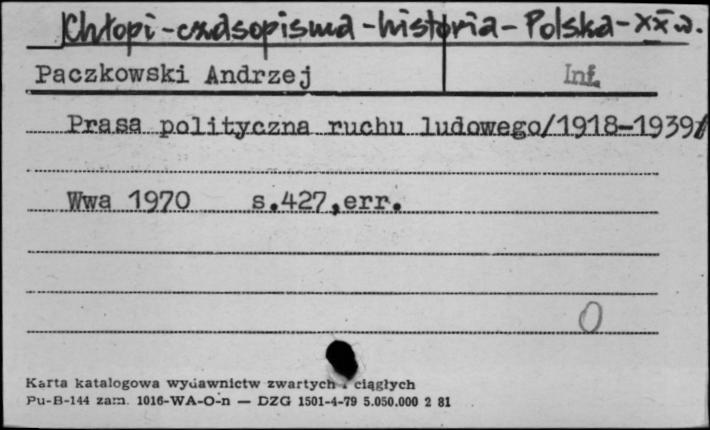 Chłopi-czasopisma-historia-Polska-XX w.
Paczkowski Andrzej Inf.
Prasa polityczna ruchu ludowego/1918-1939/
Wwa 1970 s.427,err.
O
Karta katalogowa wydawnictw zwartych i ciągłych
Pu-B-144 zam. 1016-WA-O-n — DZG 1501-4-79 5.050.000 2 81